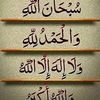 سُبْحَانَ اللّٰهِ
وَالْحَمْدُ لِلّٰهِ
وَلَا إِلٰهَ إِلَّا اللّٰهُ
وَاللّٰهُ أَكْبَرُ